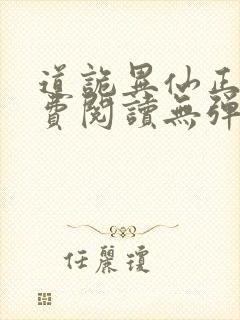 道詭異仙正
費閱讀無彈
任麗瓊